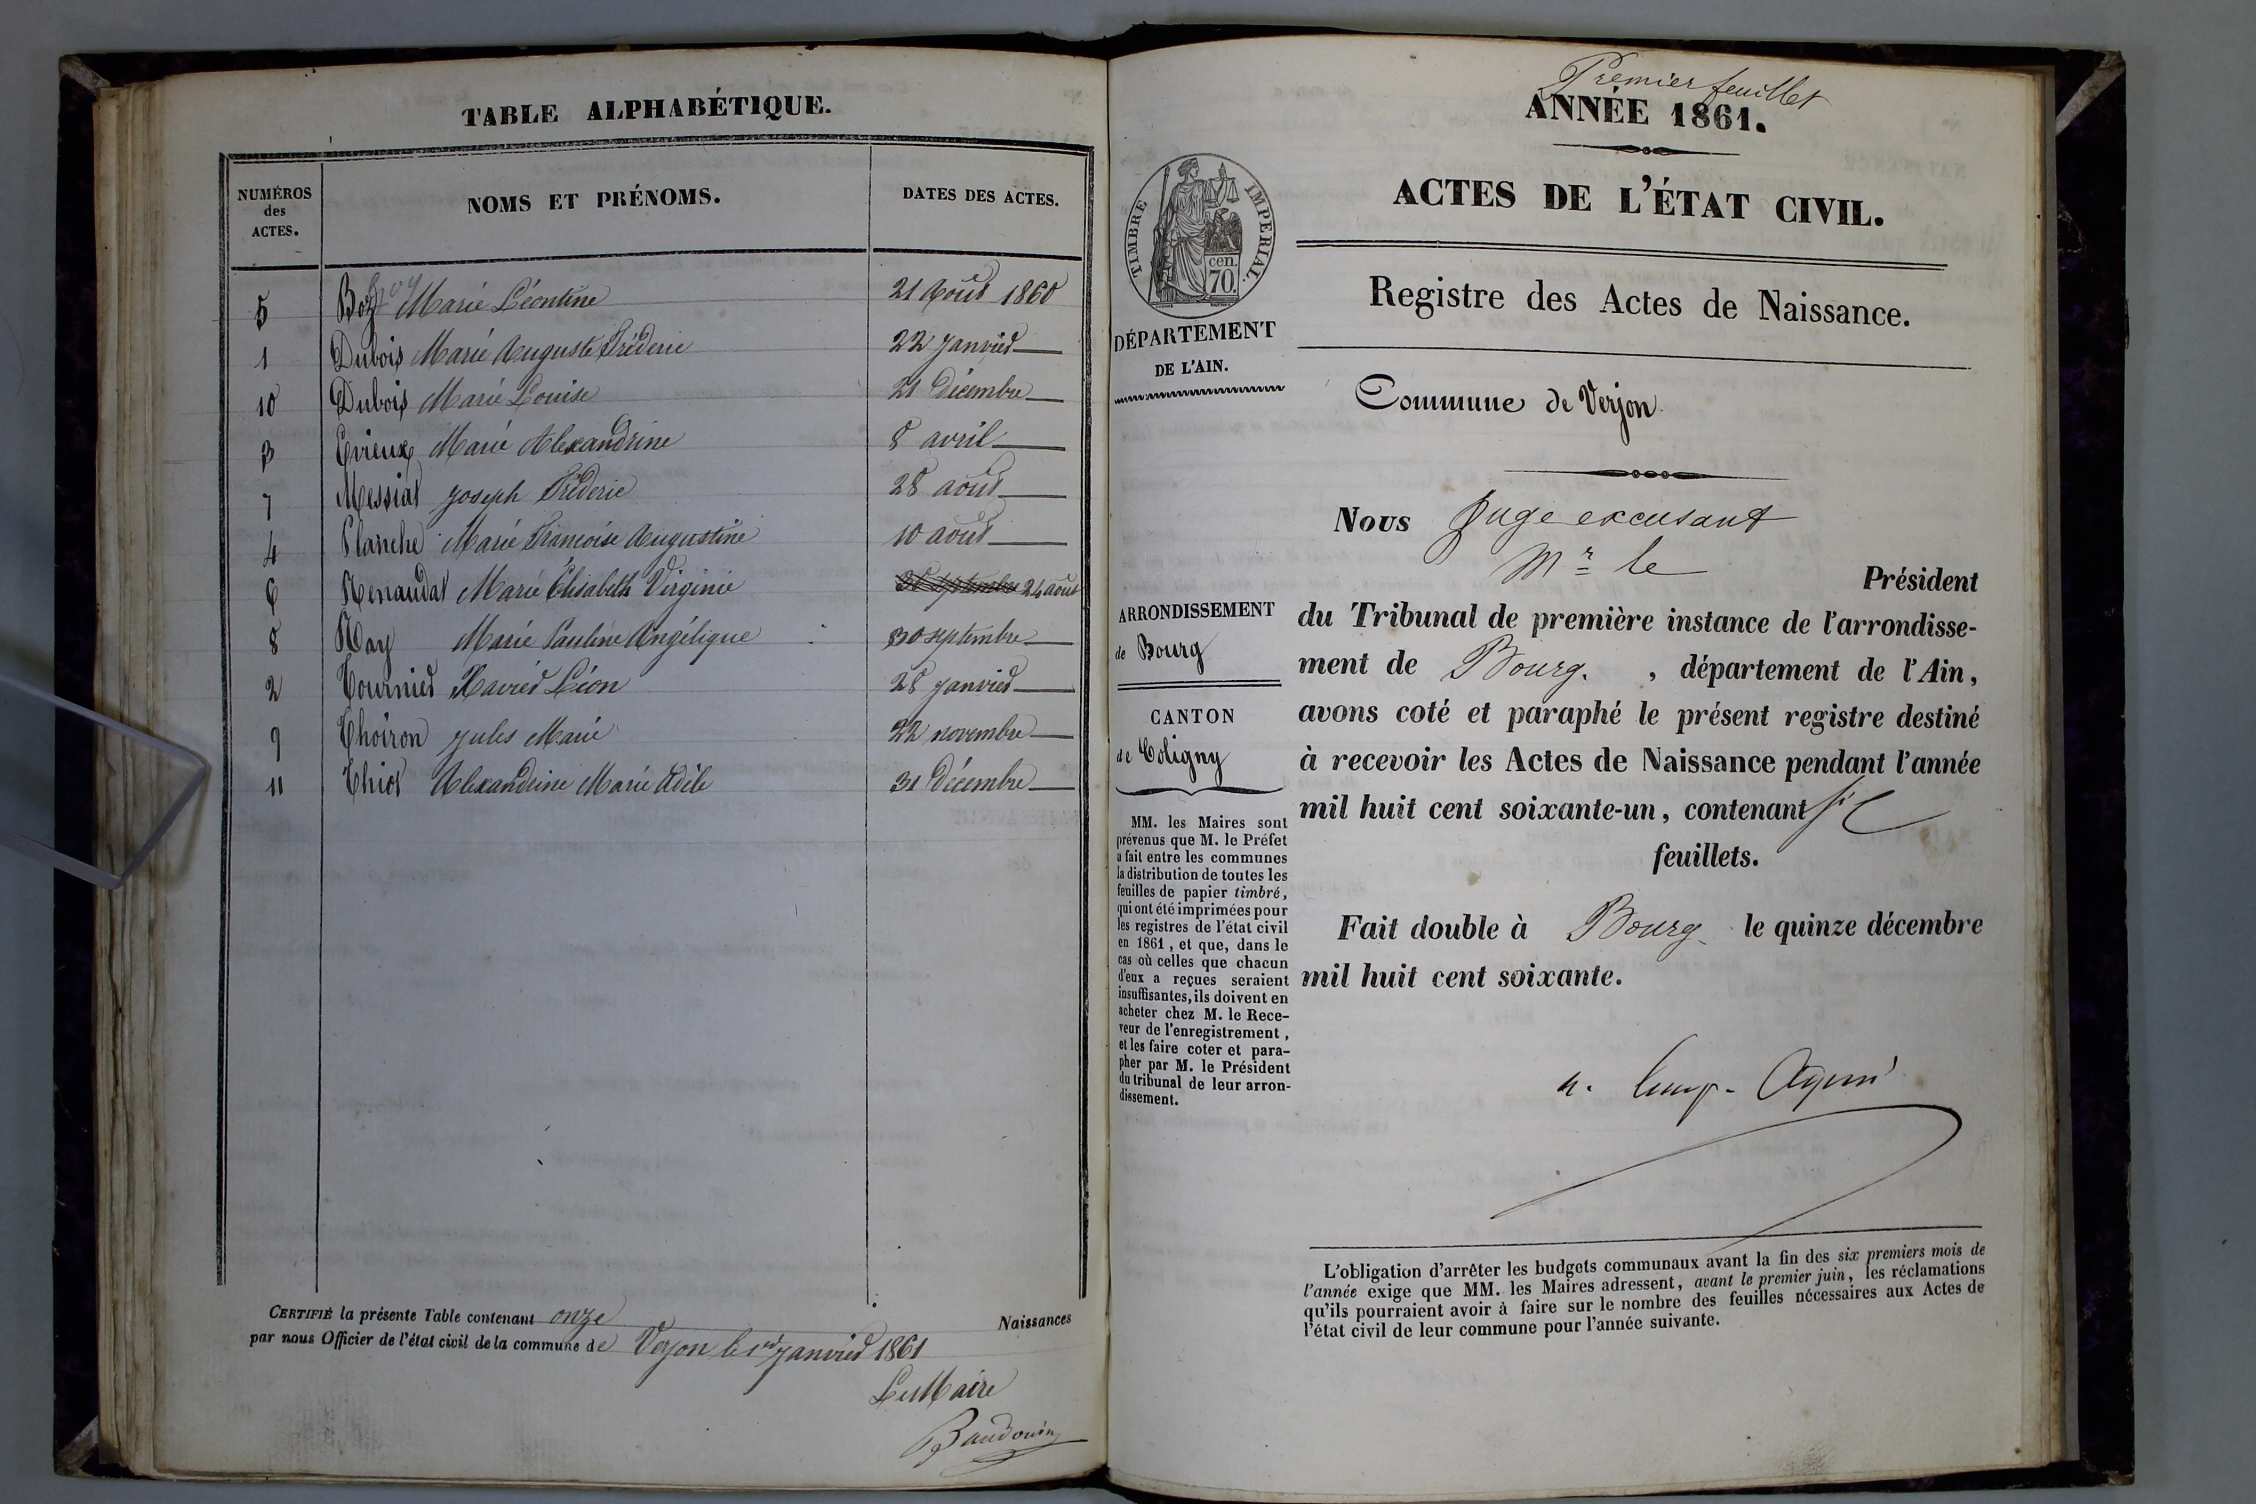 TABLE ALPHABÉTIQUE.
NUMÉROS
des
ACTES.
NOMS ET PRÉNOMS.
DATES DES ACTES.
5 Marie Léontine 21 Août 1860
1 Dubois Marie Auguste Fréderic 22 janvier
10 Dubois Marie Louise 21 Décembre
3 Evieux Marie Alexandrine 8 avril
7 Messiat Joseph Fréderic 28 août
4 Planche Marie Françoise Augustine 10 août
6 Renaudat Marie Elisabeth Virginie 24 août
8 Ray Marie Pauline Angélique 30 septembre
2 Tournier Xavier Léon 28 janvier
9 Thoiron Jules Marie 22 novembre
11 Thiot Alexandrine Marie Adèle 31 Décembre
CERTIFIÉ la présente Table contenant onze Naissances
par nous Officier de l'état civil de la commune de Verjon le 1er janvier 1861
Le Maire
Baudouin
Premier feuillet
ANNÉE 1861.
ACTES DE L'ÉTAT CIVIL.
TIMBRE IMPÉRIAL.
cen.
70.
Registre des Actes de Naissance.
DÉPARTEMENT
DE L'AIN.
Commune de Verjon
Nous Juge excusant
Mr le
Président
du Tribunal de première instance de l'arrondisse-
ment de Bourg. , département de l'Ain,
avons coté et paraphé le présent registre destiné
à recevoir les Actes de Naissance pendant l'année
mil huit cent soixante-un, contenant
feuillets.
Fait double à Bourg le quinze décembre
mil huit cent soixante.
ARRONDISSEMENT
de Bourg
CANTON
de Coligny
MM. les Maires sont
prévenus que M. le Préfet
a fait entre les communes
la distribution de toutes les
feuilles de papier timbré,
qui ont été imprimées pour
les registres de l'état civil
en 1861, et que, dans le
cas où celles que chacun
d'eux a reçues seraient
insuffisantes, ils doivent en
acheter chez M. le Rece-
veur de l'enregistrement,
et les faire coter et para-
pher par M. le Président
du tribunal de leur arron-
dissement.
L'obligation d'arrêter les budgets communaux avant la fin des six premiers mois de
l'année exige que MM. les Maires adressent, avant le premier juin, les réclamations
qu'ils pourraient avoir à faire sur le nombre des feuilles nécessaires aux Actes de
l'état civil de leur commune pour l'année suivante.